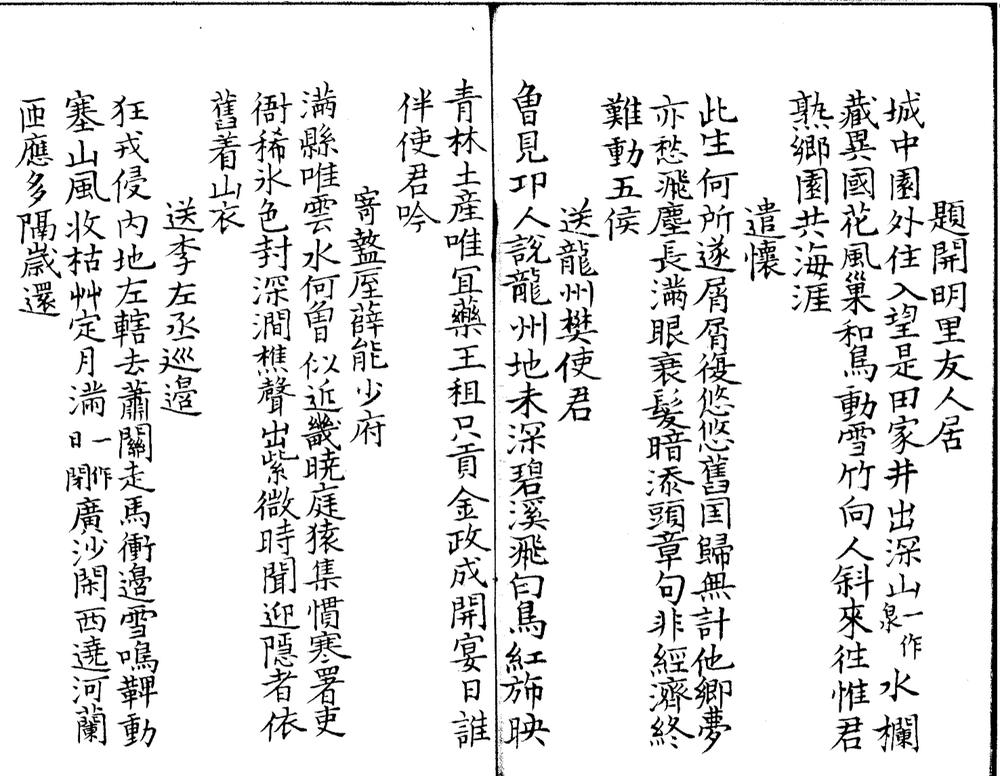 題開明里友人居
城中園外住入望是田家井出深山一作泉水欄
藏異國花風巢和鳥動雪竹向人斜來往惟君
熟鄉園共海涯
遣懷
此生何所遂屑屑復悠悠舊国歸無計他鄉夢
亦愁飛塵長滿眼衰髮暗添頭章句非經濟終
難動五侯
送龍州樊使君
曾見邛人說龍州地未深碧溪飛白鳥紅斾映
青林土產唯宜藥王租只貢金政成開宴日誰
伴使君吟
寄盩厔薛能少府
滿縣唯雲水何曾似近畿曉庭猿集慣寒署吏
衙稀氷色封深澗樵聲出紫微時聞迎隱者依
舊着山衣
送李左丞巡邊
狂戎侵內地左轄去蕭關走馬衝邊雪鳴鞞動
塞山風收枯艸定月滿一作日閑廣沙閑西遶河蘭
匝應多隔歲還